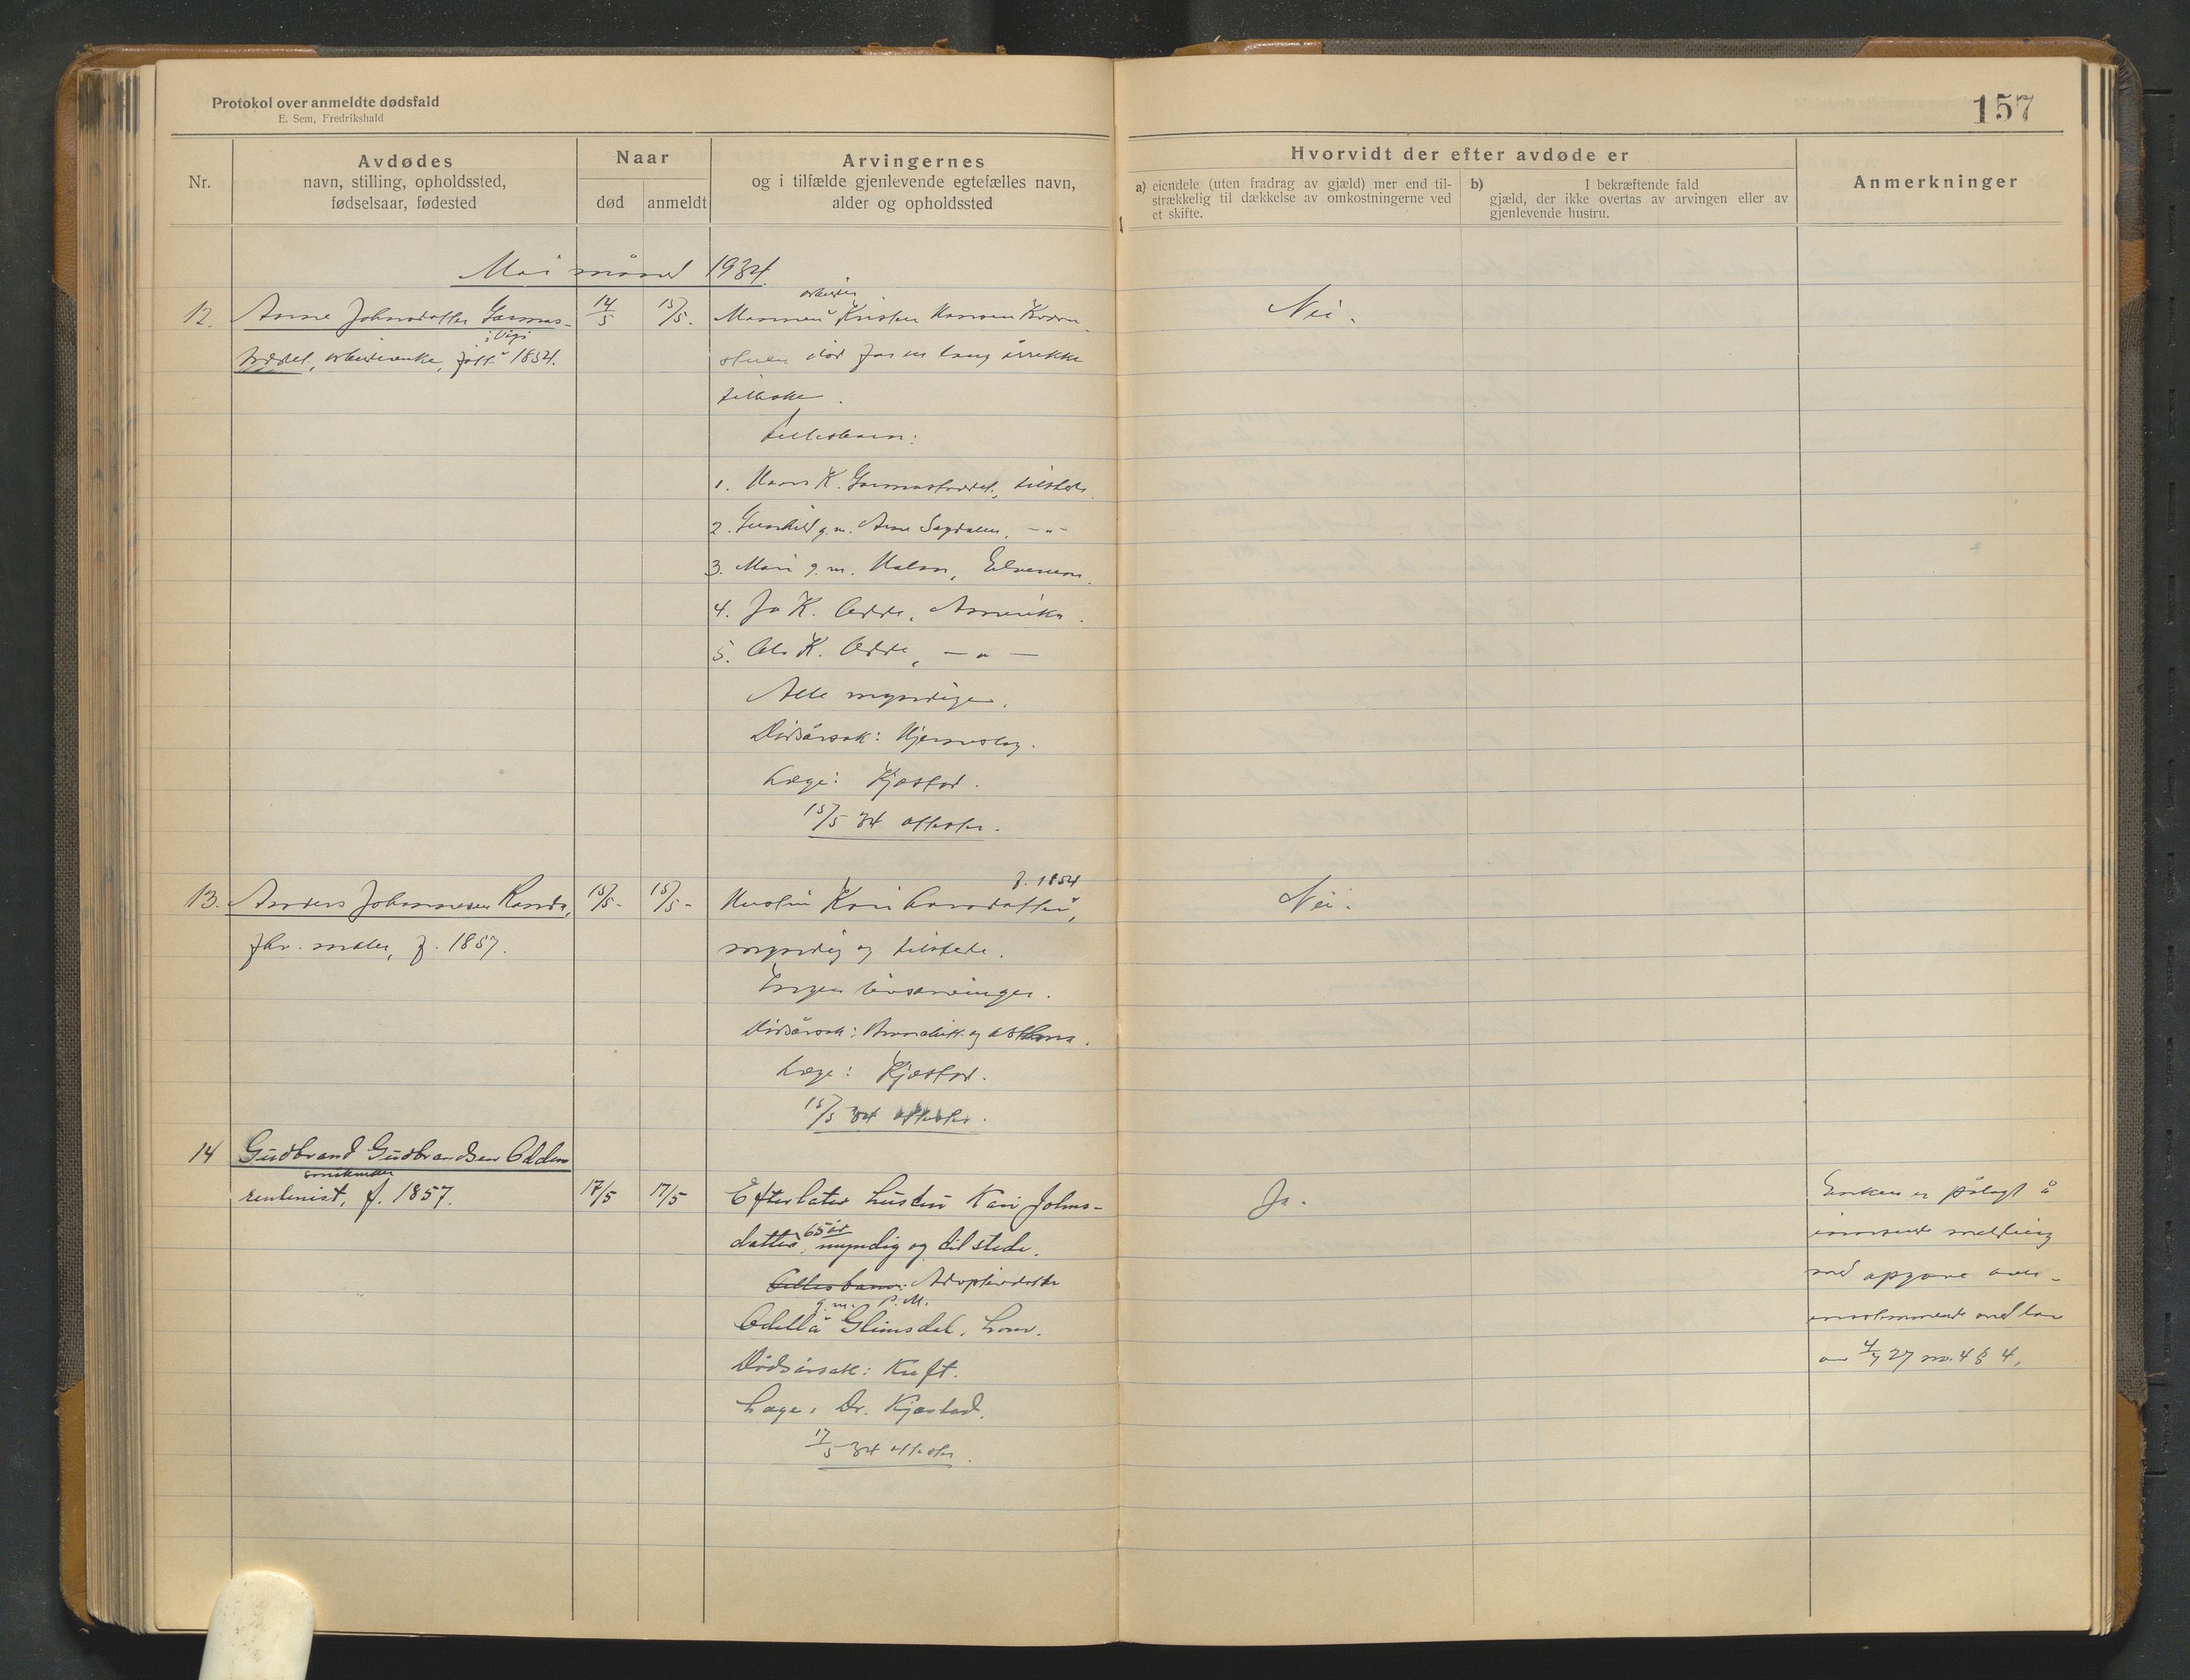 Protokol over anmeldte dødsfald
E. Sem, Fredrikshald
157
Nr.
Avdødes
navn, stilling, opholdssted,
fødselsaar, fødested
Naar
død
anmeldt
Arvingernes
og i tilfælde gjenlevende egtefælles navn,
alder og opholdssted
Hvorvidt der efter avdøde er
a) eiendele (uten fradrag av gjæld) mer end til-
strækkelig til dækkelse av omkostningerne ved
et skifte.
b) I bekræftende fald
gjæld, der ikke overtas av arvingen eller av
gjenlevende hustru.
Anmerkninger
Mai måned 1934.
12. Anne Johnsdatter Garmas-
i Vågå
trædet, arbeiderenke, født 1854.
14/5
15/5.
arbeider
Mannen Kristen Hansen
død for en lang årrekke
tilbake.
Fellesbarn:
1. Hans K. Garmastrædet, tilstede.
2. Gunhild g.m. Arne Sagdalen, -"-
3. Mari g.m. Halvor, Elverum.
4. Jo K. Odde, Amerika.
5. Ole K. Odde, -"-
Alle myndige.
Dødsårsak: Hjerneslag.
Læge: Kjøstad.
15/5 34 attester.
Nei.
13. Anders Johannesen Randa,
fhv. maler, f. 1857.
15/5-
15/5-
f. 1854
Hustru Kari Larsdatter,
myndig og tilstede.
Ingen livsarvinger.
Dødsårsak: Bronchitt og asthma.
Læge: Kjøstad.
15/5 34 attester.
Nei.
14 Gudbrand Gudbrandsen Odden
rentenist, f. 1857.
17/5
17/5
Efterlater hustru Kari Johns-
65 år
datter, myndig og tilstede.
Fellesbarn: Adoptivdatter
g.m. P.M.
Odella Glimsdal, Lom.
Dødsårsak: Kreft.
Læge: Dr. Kjøstad.
17/5 34 attester.
Ja.
Enken er pålagt å
innsende melding
med opgave over-
ensstemmende med lov
av 4/7 27 nr. 4 § 4.